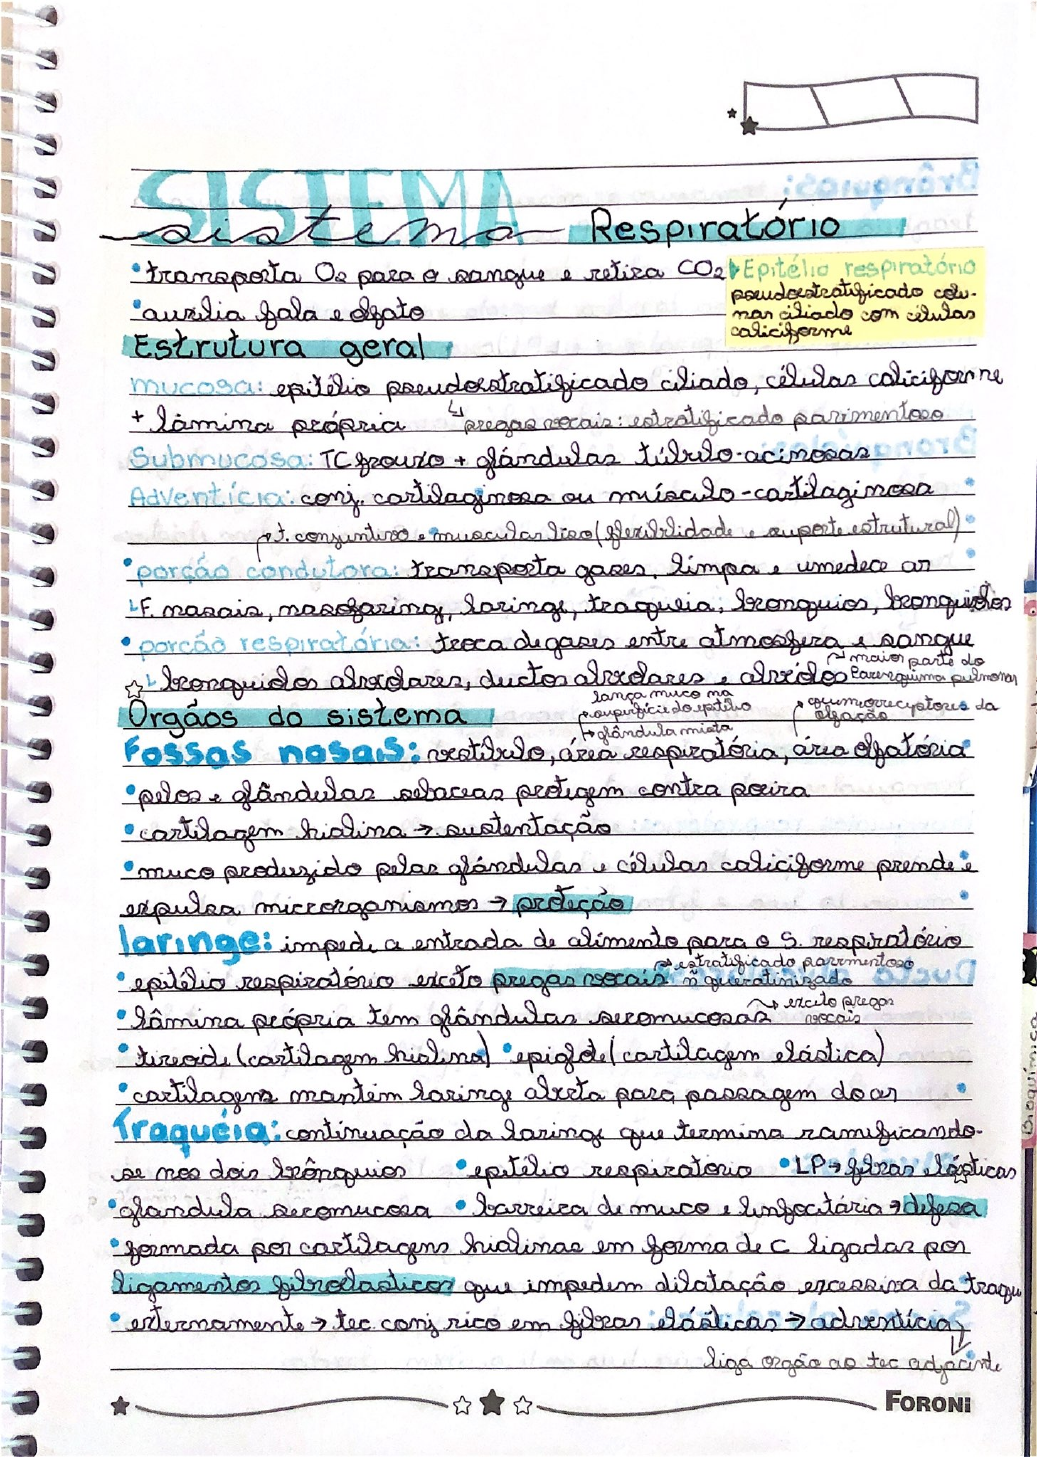 SISTEMA
sistema Respiratório
• transporta O2 para o sangue e retira CO2
Epitélio respiratório
pseudoestratificado colu-
nar ciliado com células
caliciforme
• auxilia fala e olfato
Estrutura geral
mucosa: epitélio pseudoestratificado ciliado, células caliciforme
+ lâmina própria ↳ pregas vocais: estratificado pavimentoso
Submucosa: TC frouxo + glândulas túbulo-acinosas
Adventícia: conj. cartilaginosa ou músculo-cartilaginosa
t. conjuntivo e muscular liso (flexibilidade e suporte estrutural)
• porção condutora: transporta gases, limpa e umedece ar
↳ F. nasais, nasofaring, laringe, traqueia, bronquios, bronquiolos
• porção respiratória: troca de gases entre atmosfera e sangue
↳ bronquiolos alveolares, ductos alveolares e alvéolos
→ maior parte do
parenquima pulmonar
Orgãos do sistema
lança muco na
superfície do epitélio
→ glândula mista
quimiorreceptores da
olfação
Fossas nasais: vestíbulo, área respiratória, área olfatória
• pelos e glândulas sebaceas protegem contra poeira
• cartilagem hialina → sustentação
• muco produzido pelas glândulas e células caliciforme prende e
expulsa microrganismos → proteção
laringe: impede a entrada de alimento para o S. respiratório
• epitélio respiratório exceto pregas vocais → estratificado pavimentoso
ñ queratinizado
• lâmina própria tem glândulas seromucosas → exceto pregas
vocais
• tireoide (cartilagem hialina) • epiglote (cartilagem elástica)
• cartilagens mantém laringe aberta para passagem do ar
Traquéia: continuação da laringe que termina ramificando-
se nos dois brônquios • epitélio respiratorio • LP → fibras elásticas
• glandula seromucosa • barreira de muco e linfocitária → defesa
• formada por cartilagens hialinas em forma de C ligadas por
ligamentos fibroelasticos que impedem dilatação excessiva da traqu
• externamente → tec. conj rico em fibras elásticas → adventícia
liga orgão ao tec adjacente
FORONI
Bioquímica